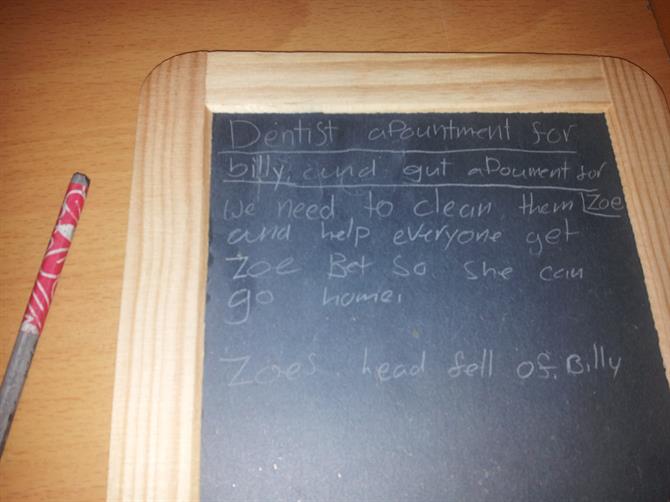 Dentist apountment for
billy, and gut apoument for
we need to clean them Zoe
and help everyone get
Zoe Bet so she can
go home.
Zoes head fell of. Billy